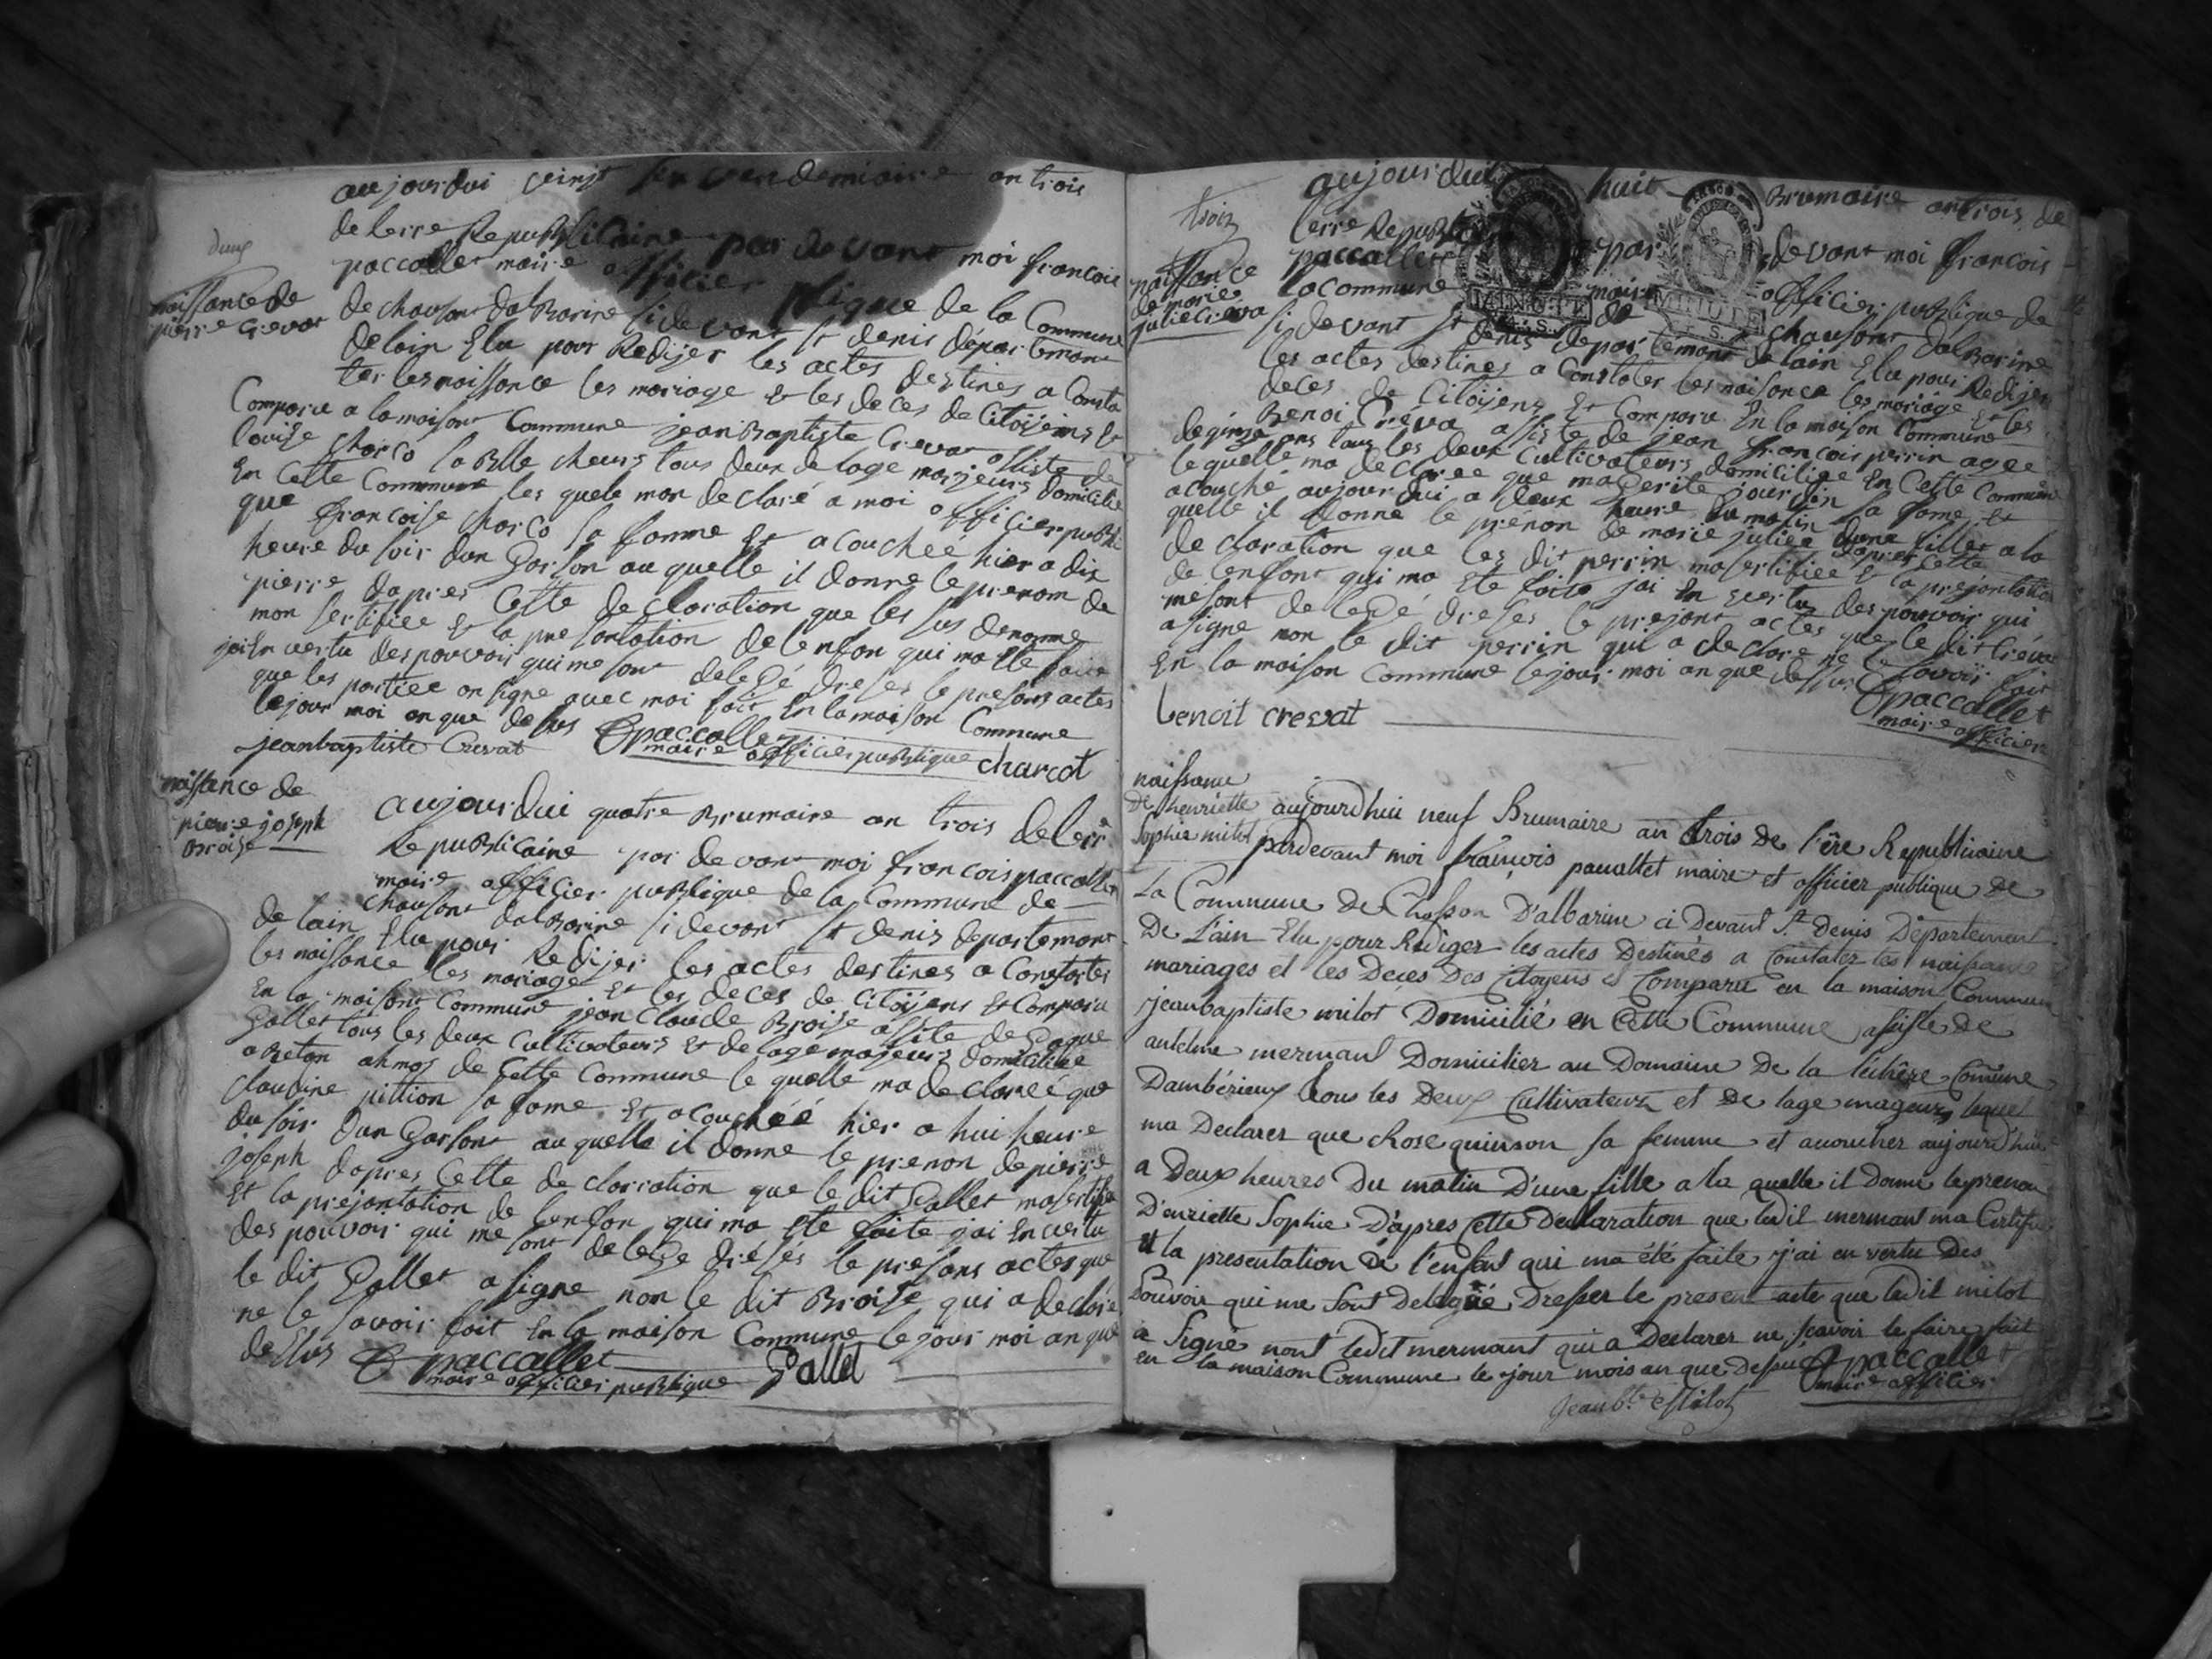 deux
naissance de
pierre Crevat
aujourdui veingt sen vendemiaire an trois
de lerre RepuBlicaine par devant moi francois
paccallet maire officier pLique de la Commune
de chausont dalBarine si devant st denis départemant
de lain Elu pour Redijer les actes destines a Consta
ter les naissance les mariage Et les deces de Citoijeins Et
Comparu a la maisont Commune jeanBaptiste Crevat assiste de
louise charco la Belle cheurs tous deux de lage marjeurs domicilie
En Cette Commune les quele mon declaré a moi officier publi
que francoise charco sa famme Et acoucheé hier a dix
heure du soir dun Garson au quelle il donne le prenom de
pierre dapres Cette declaration que les sus denomme
mon sertifiee Et la presantation de lenfan qui ma Ete faite
jai En vertu des pouvoir qui me sont delegé dreses le presans actes
que les partiee on signe avec moi fait En la maison Commune
le jour moi an que desus
jeanbaptiste Crevat paccallet maire officier puBlique charcot
naissance de
pierre joseph
Broise
aujourdui quatre Brumaire an trois de lerre
RepuBlicaine par devant moi francois paccallet
maire officier puBlique de la Commune de
chausont dalBarine si devant st denis departemant
de lain Elu pour Redijer les actes destines a Constater
les naissance les mariage Et les deces de Citoijens Et Comparu
En la maisont Commune jean Claude Broise assite de
Gallet tous les deux Cultivateurs Et de lage majeurs domicilie
a de Cette Commune le quelle ma declareé que
claudine pittion sa fame Et acoucheé hier a hui heure
du soir dun Garsont au quelle il donne le prenon de pierre
joseph dapres Cette declarration que le dit Gallet masertifie
Et la prejantation de lenfan qui ma Ete faite jai En vertu
des pouvoir qui me sont delege drésés le presans actes que
le dit Gallet a signe non le dit Broise qui a declore
ne le savoir fait En la maison Commune le jour moi an que
desus paccallet maire officier puBlique Gallet
trois
naissance
de marie
julie Creva
aujourdui huit Brumaire an trois de
lerre RepuBl par devant moi francois
paccallet maire officier puBlique de
la commune de chausont dalBarine
MINUTE MINUTE
si devant st denis departemant de lain Elu pour Redijer
les actes destines a Constater les naisance les mariage Et les
deces de Citoijens Et Comparu En la maison Commune
Benoi Créva assiste de jean francois perrin agee
de ans tous les deux Cultivateurs domiciliee En Cette Commune
le quelle ma declaree que magerite jourdin sa fame Et
acouché aujourdui a deux heure du matin dune fille a la
quelle il donne le prénon de marie juliee dapres Cette
declaration que les dit perrin masertifiee Et la prejantation
de lenfant qui ma Ete faite jai En vertu des pouvoir qui
me sont delegé dreses le prejant actes que le dit Créva
a signe non le dit perrin qui a declare ne le savoir fait
En la maison Commune le jour moi an que desus
benoit crevat paccallet maire officier
naissance
de henriette
Sophie milot
aujourdhui neuf Brumaire an trois de l'ère Republicaine
pardevant moi françois pacallet maire et officier publique de
La Commune de Chosson D'albarine ci Devant St Denis Département
De L'ain Elu pour Rediger les actes Destinés a Constater les naissance
mariages et les Deces Des Citoyens et Comparu en la maison Commune
jeanbaptiste milot Domicilié en Cette Commune assiste de
antelme mermant Domicilier au Domaine De la léchere Comune
Dambérieux tous les Deux Cultivateurs et De lage mageurs lequel
ma Declarer que Rose quinson sa femme et accoucher aujourdhui
a Deux heures Du matin D'une fille a la quelle il Donne le prenon
D'enriette Sophie D'apres Cette Declaration que ledit mermant ma Certifie
Et la presentation de l'enfant qui ma été faite j'ai en vertu Des
Pouvoir qui me sont Delegué Dresser le present acte que ledit milot
a Signé nont ledit mermant qui a Declarer ne scavoir le faire fait
en la maison Commune le jour mois an que Dessu paccallet
maire officier
Jean bte Milot